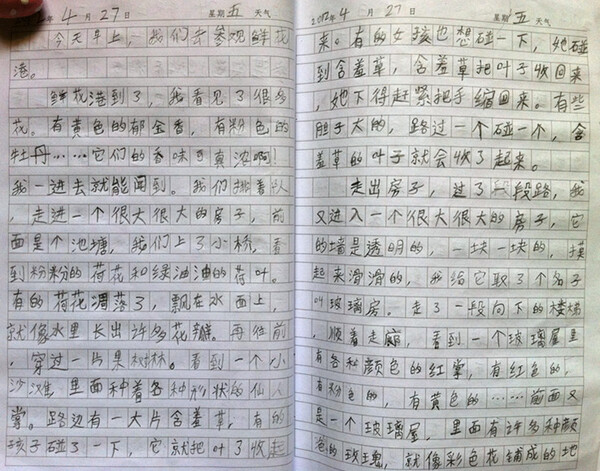 年 4 月 27 日 星期 五 天气
今天早上，我们去参观鲜花
港。
鲜花港到了，我看见了很多
花。有黄色的郁金香，有粉色的
牡丹……它们的香味可真浓啊！
我一进去就能闻到。我们排着队
，走进一个很大很大的房子，前
面是个池塘，我们上了小桥，看
到粉粉的荷花和绿油油的荷叶。
有的荷花凋落了，飘在水面上，
就像水里长出许多花瓣。再往前
，穿过一片果树林。看到一个小
沙滩，里面种着各种形状的仙人
掌。路边有一大片含羞草，有的
孩子碰了一下，它就把叶子收起
2012年 4 月 27 日 星期 五 天气
来。有的女孩也想碰一下，她碰
到含羞草，含羞草把叶子收回来
，她下得赶紧把手缩回来。有些
胆子大的，路过一个碰一个，含
羞草的叶子就会收了起来。
走出房子，过了一段路，我
又进入一个很大很大的房子，它
的墙是透明的，一块一块的，摸
起来滑滑的，我给它取了个名字
叫玻璃房。走了一段向下的楼梯
，顺着走廊，看到一个玻璃屋里
有各种颜色的红掌，有红色的，
有粉色的，有黄色的……前面又
是一个玻璃屋，里面有许多种颜
色的玫瑰，就像彩色花铺成的地